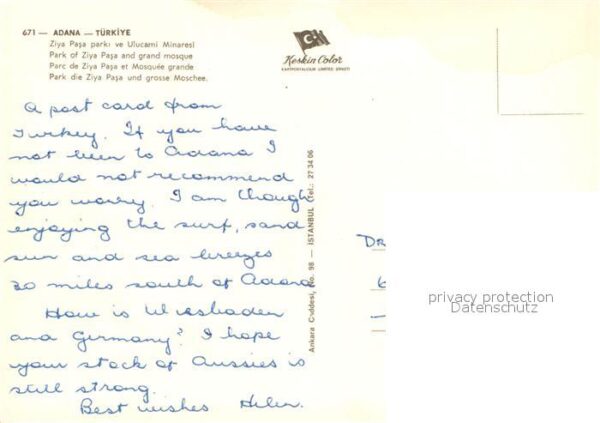 671 — ADANA — TÜRKİYE
Ziya Paşa parkı ve Ulucami Minaresi
Park of Ziya Paşa and grand mosque
Parc de Ziya Paşa et Mosquée grande
Park die Ziya Paşa und grosse Moschee.
Keskin Color
KARTPOSTALCILIK LIMITED ŞİRKETİ
A post card from
Turkey. If you have
not been to Adana I
would not recommend
you worry. I am though
enjoying the surf, sand
sun and sea breezes
30 miles south of Adana
How is Wiesbaden
and Germany? I hope
your stock of Aussies is
still strong.
Best wishes Helen.
Ankara Caddesi, No. 98 — İSTANBUL (Tel.: 27 34 06
DR
6
privacy protection
Datenschutz